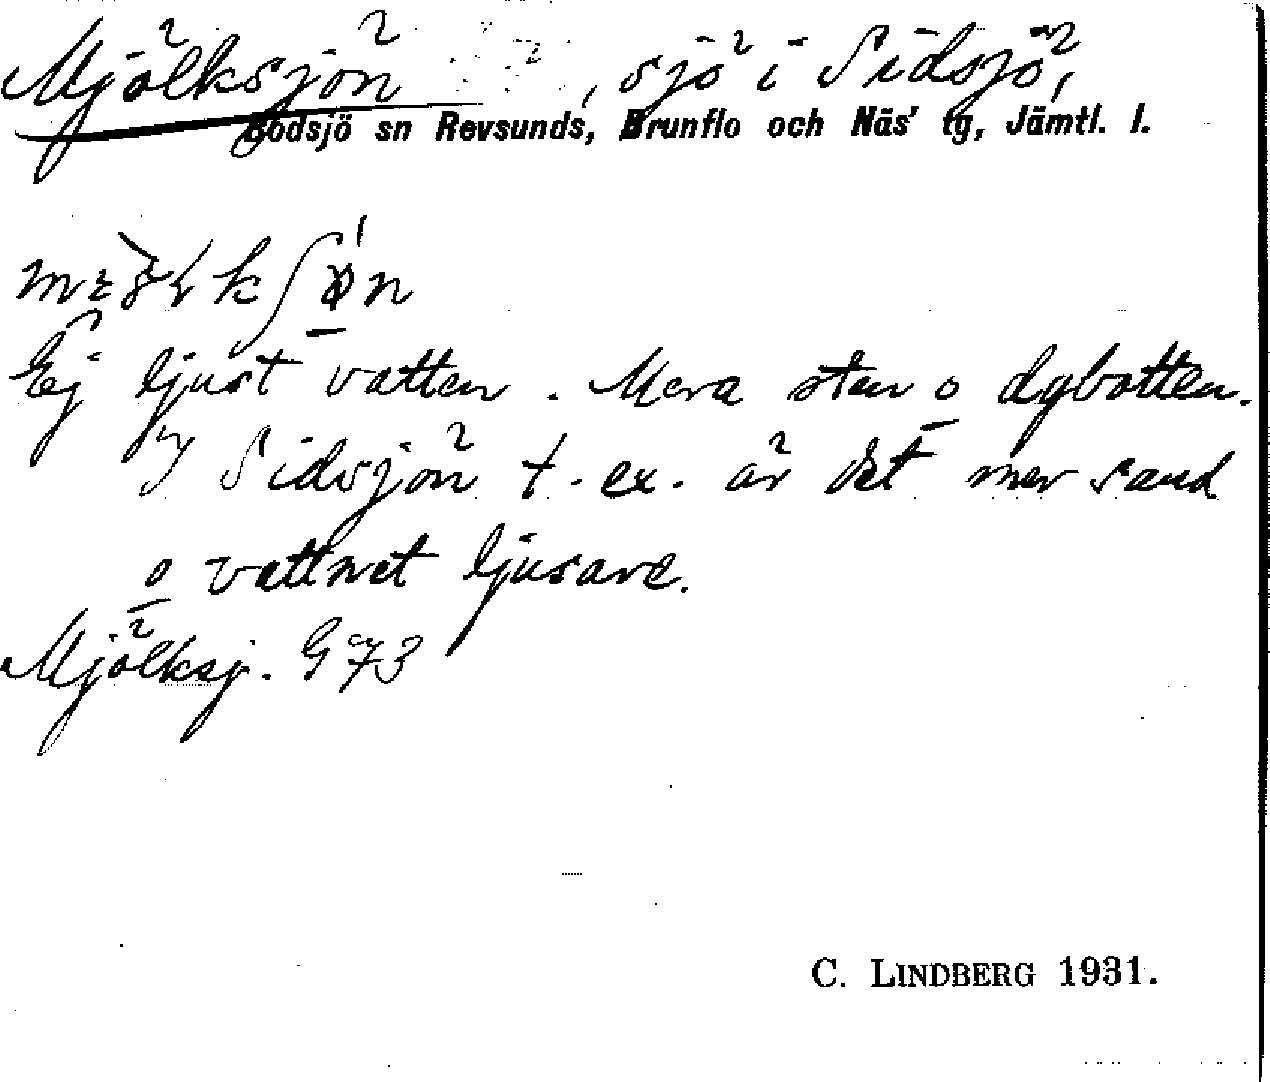 Mjölksjön, sjö i Sidsjö,
Bodsjö sn Revsunds, Brunflo och Näs' tg, Jämtl. l.
Ej ljust vatten. Mera sten o dybotten.
I Sidsjön t. ex. är det mer sand
o vattnet ljusare.
Mjölksj. G 73
C. LINDBERG 1931.